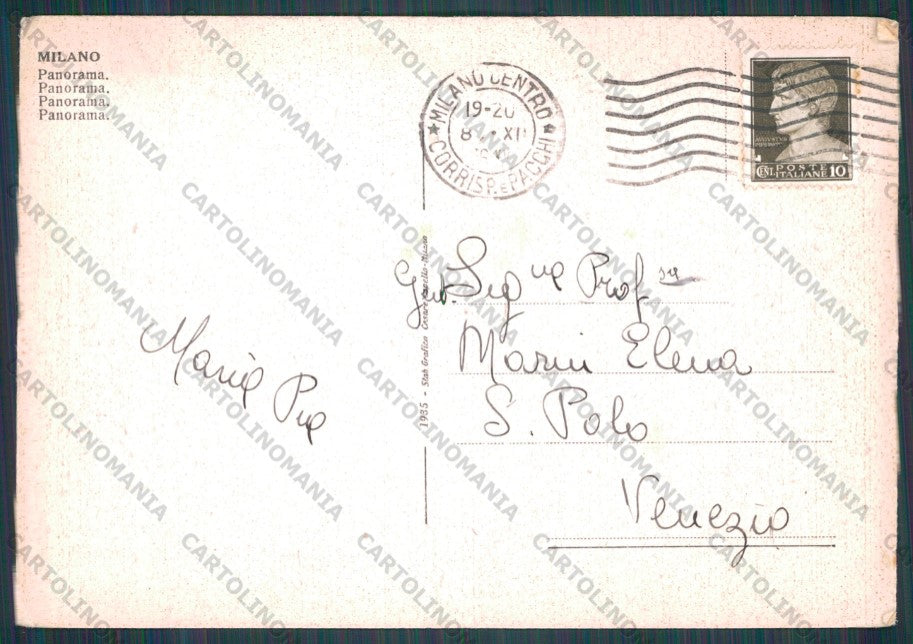 MILANO
Panorama.
Panorama.
Panorama.
Panorama.
MILANO CENTRO
19-20
CORRISP. E PACCHI
POSTE
CENT. ITALIANE 10
1935 - Stab Grafico Cesare - Milano
Sig.na Prof.sa
Marin Elena
S. Polo
Venezia
Maria
CARTOLINOMANIA